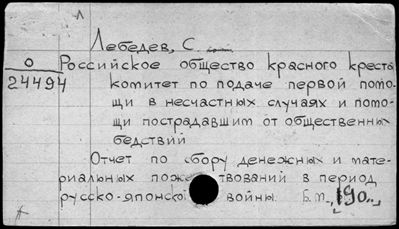 Лебедев, С.
О Российское общество красного креста
24494 комитет по подаче первой помо-
щи в несчастных случаях и помо-
щи пострадавшим от общественных
бедствий
Отчет по сбору денежных и мате-
риальных пож твований в период
русско-японско войны. Б.м., [190..]